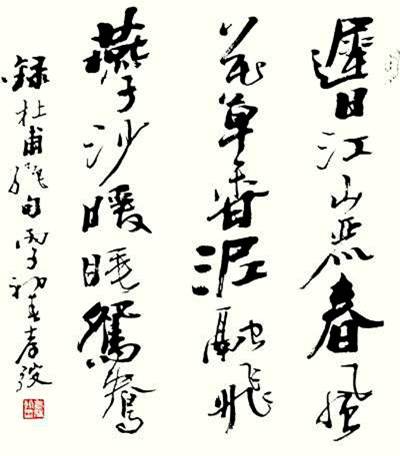 遲日江山麗春風
花草香泥融飛
燕子沙暖睡鴛鴦
錄杜甫絕句丙子初春